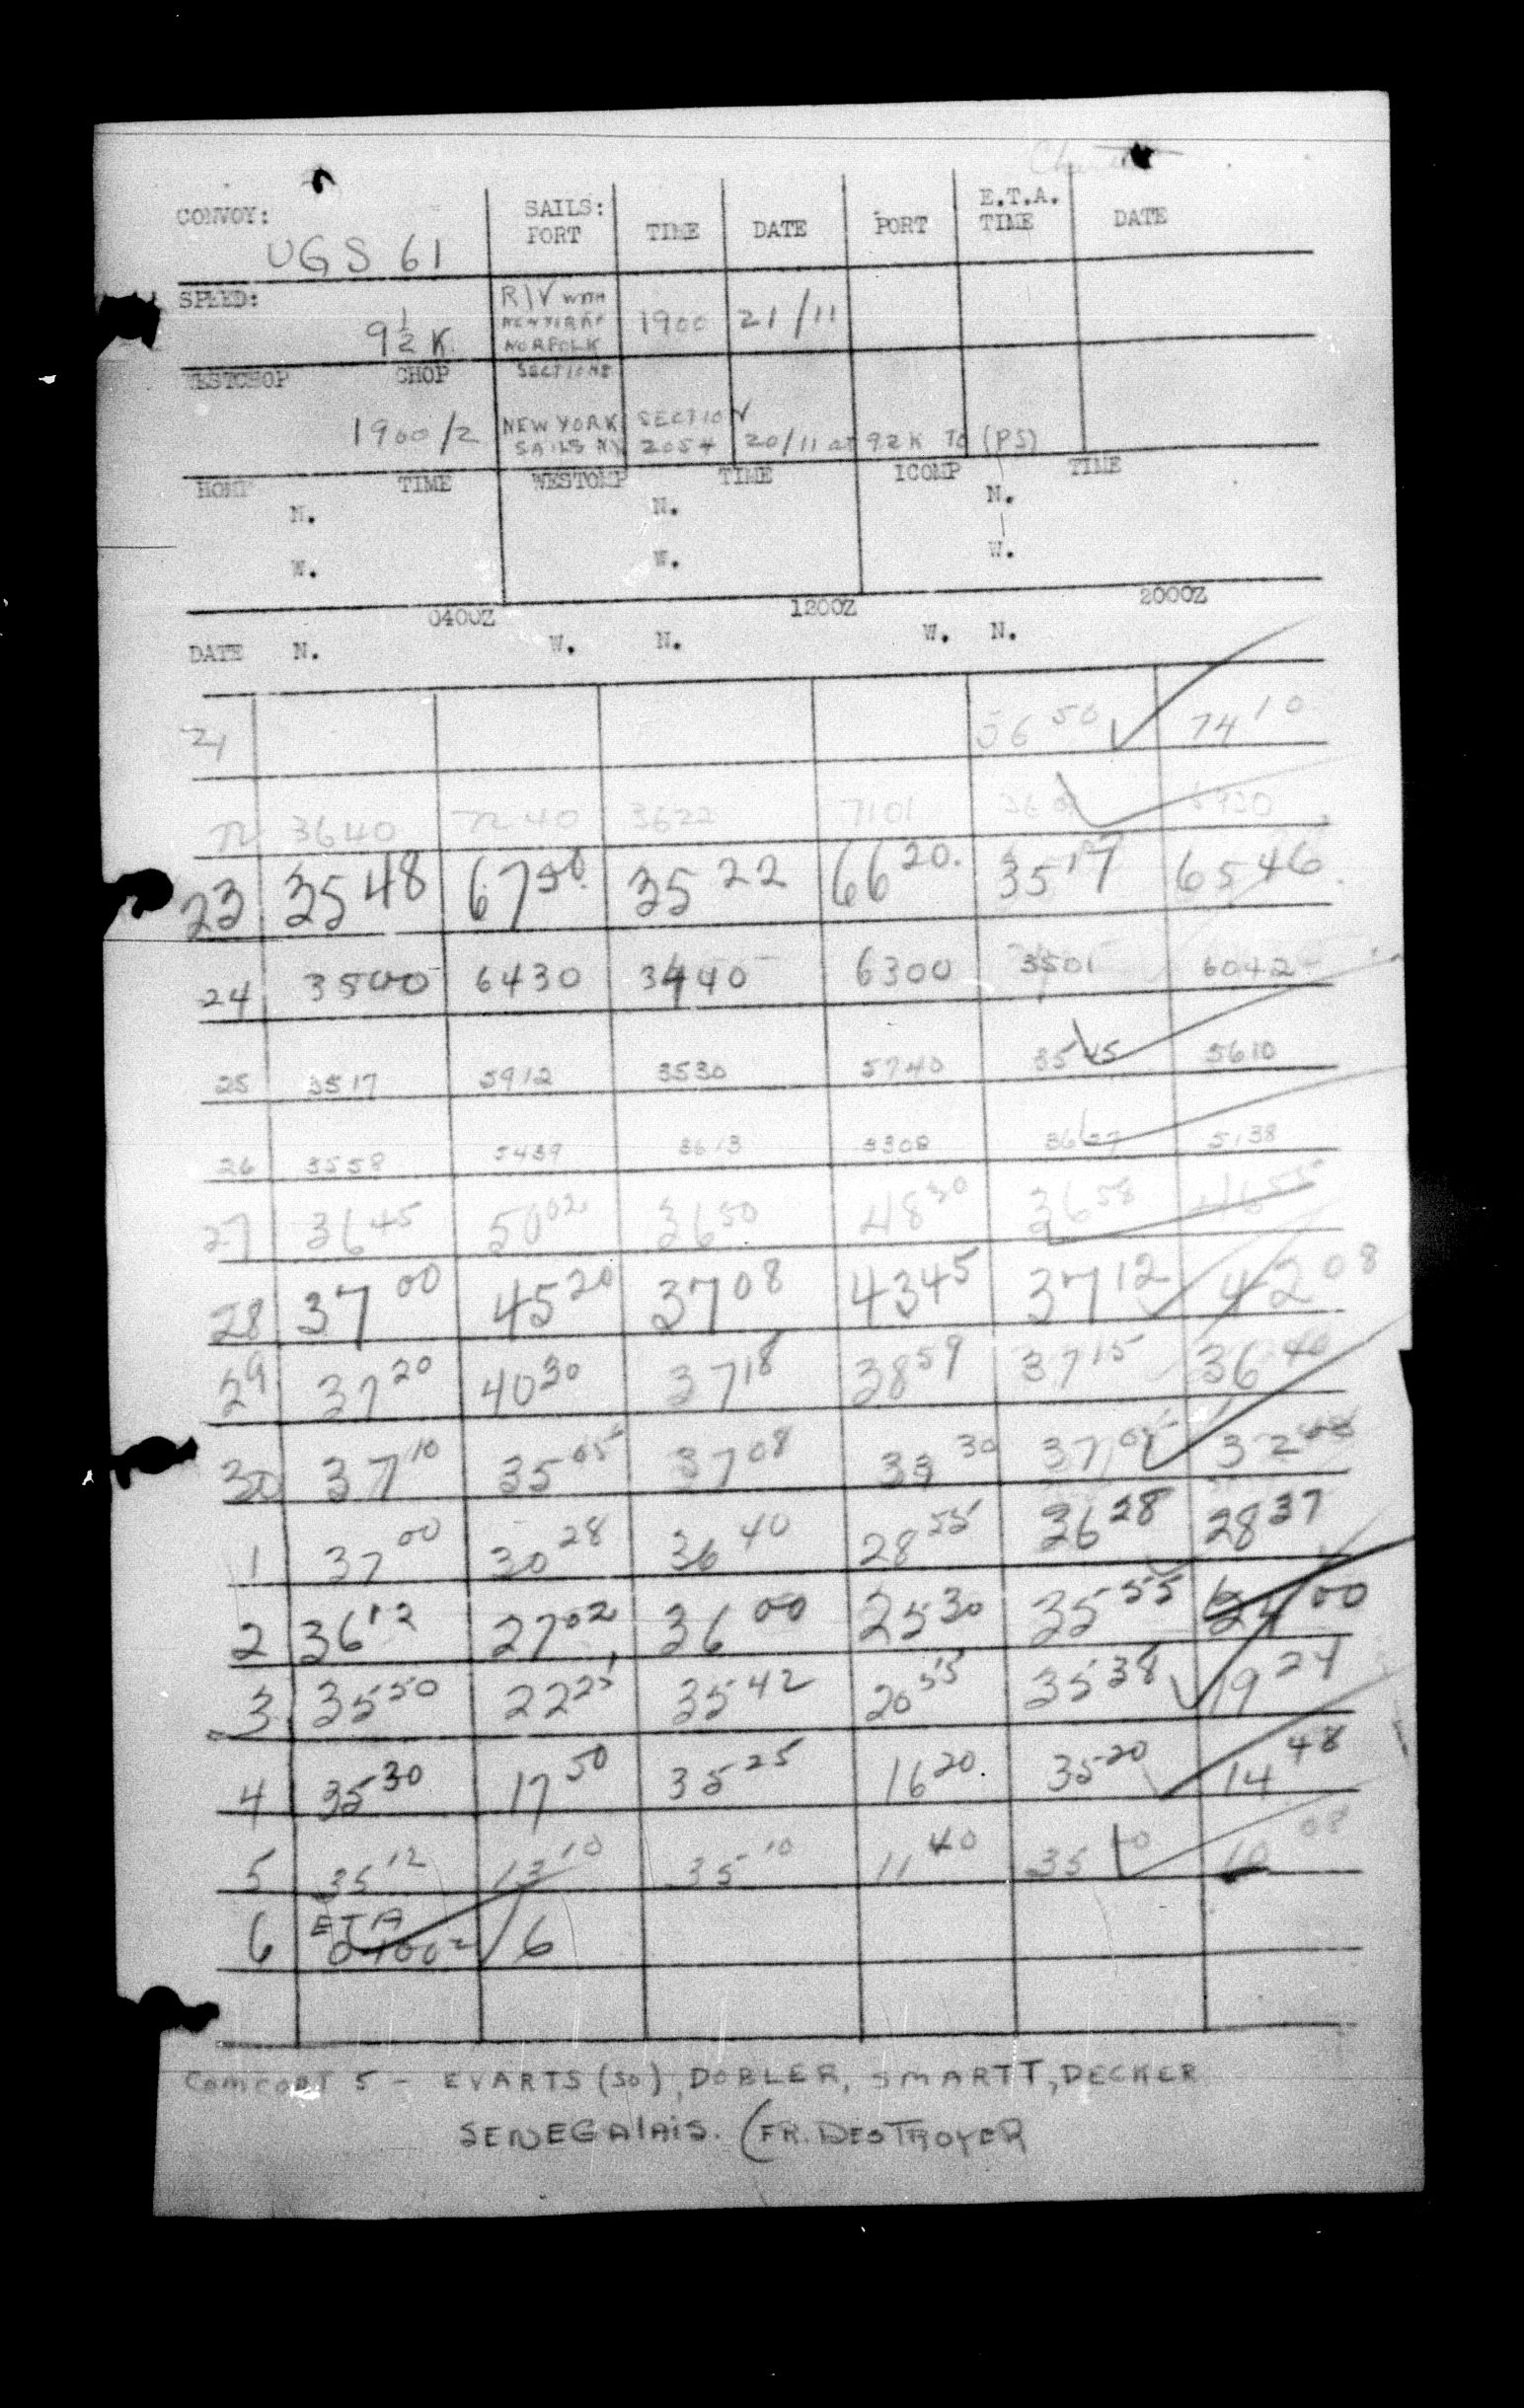 CONVOY: SAILS: E.T.A.
PORT TIME DATE PORT TIME DATE
UGS 61
SPEED: R/V WITH
9½ K. 1900 21/11
NORFOLK
WESTCHOP CHOP SECTIONS
1900/2 NEW YORK SECTION
SAILS NY 2054 20/11 at 9½K TO (PS)
HOMP TIME WESTOMP TIME ICOMP TIME
N. N. N.
W. W. W.
0400Z 1200Z 2000Z
DATE N. W. N. W. N.
21 36 50 74 10
22 3640 7240 3622 7101
23 35 48 67 50 35 22 66 20. 35 17 65 46
24 3500 6430 3440 6300 3501 6042
25 3517 5912 3530 5740 3545 5610
26 3558 5439 3613 5308 3627 5138
27 36 45 50 02 36 50 48 30 36 58 46 55
28 37 00 45 20 37 08 43 45 37 12 42 08
29 37 20 40 30 37 18 38 59 37 15 36 40
30 37 10 35 05 37 08 33 30 37 05 32
1 37 00 30 28 36 40 28 55 36 28 28 37
2 36 12 27 02 36 00 25 30 35 55 24 00
3 35 50 22 25 35 42 20 55 35 38 19 24
4 35 30 17 50 35 25 16 20. 35 20 14 48
5 35 12 13 10 35 10 11 40 35 10 10 08
6 ETA
0400Z/6
COMCORT 5 - EVARTS (SO), DOBLER, SMARTT, DECKER
SENEGALAIS. (FR. DESTROYER